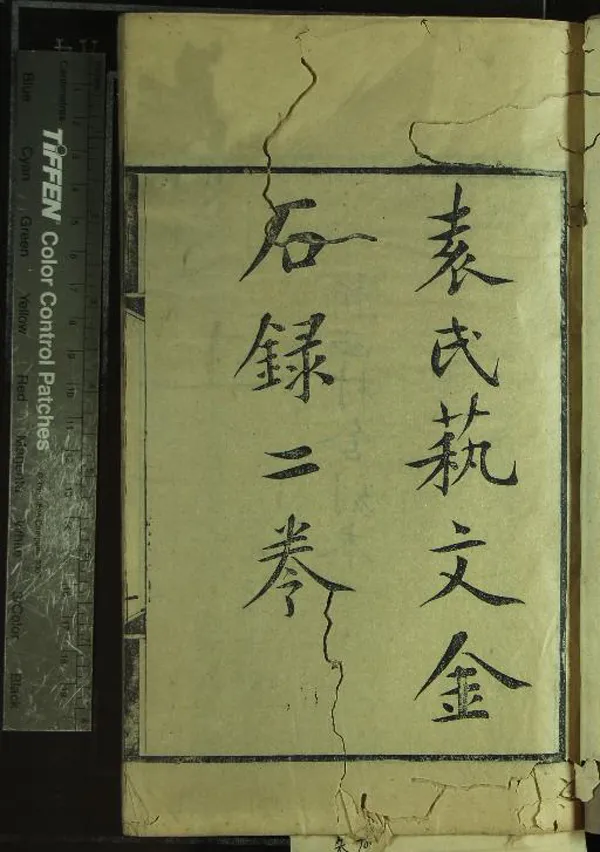 袁氏蓺文金
石録二卷
TIFFEN Color Control Patches
Blue
Cyan
Green
Yellow
Red
Magenta
White
3/Color
Black
Centimetres